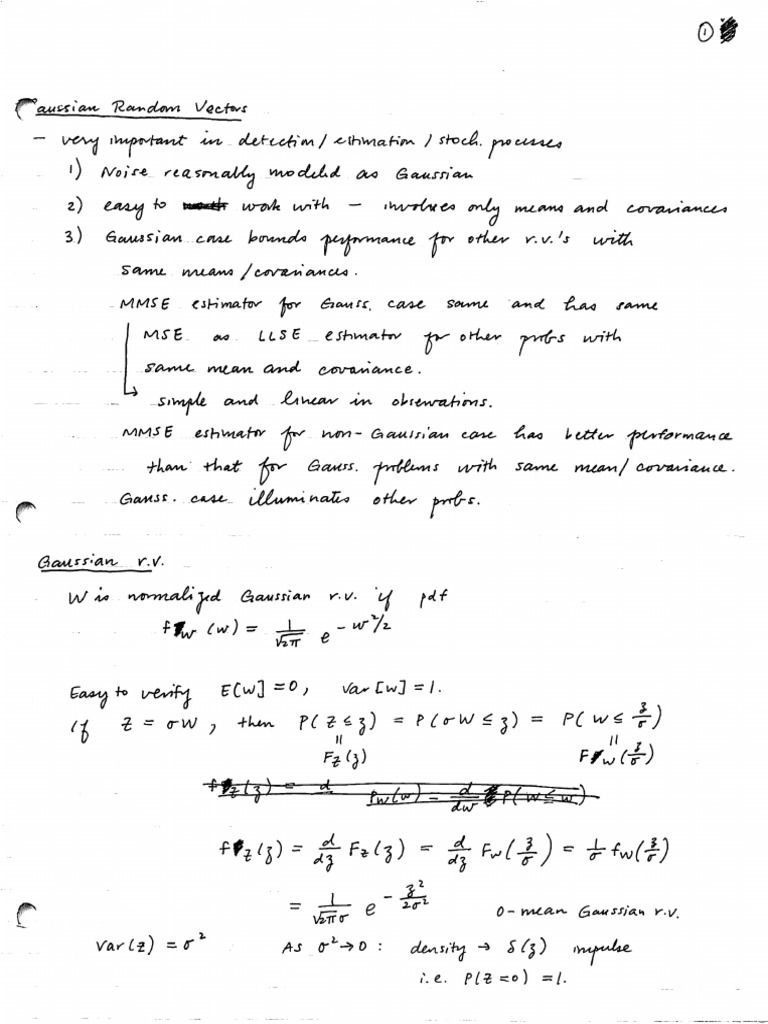 ①
Gaussian Random Vectors
– very important in detection / estimation / stoch. processes
1) Noise reasonably modeled as Gaussian
2) easy to work with – involves only means and covariances
3) Gaussian case bounds performance for other r.v.'s with
same means / covariances.
MMSE estimator for Gauss. case same and has same
MSE as LLSE estimator for other probs with
same mean and covariance.
↳ simple and linear in observations.
MMSE estimator for non-Gaussian case has better performance
than that for Gauss. problems with same mean / covariance.
Gauss. case illuminates other probs.
Gaussian r.v.
W is normalized Gaussian r.v. if pdf
f_W (w) = 1/√2π e^{-w²/2}
Easy to verify E[W] = 0, var [W] = 1.
If Z = σW, then P(Z ≤ z) = P(σW ≤ z) = P(W ≤ z/σ)
= F_Z (z) = F_W (z/σ)
f_Z (z) = d P_W (w) = d/dw P(W ≤ w)
f_Z (z) = d/dz F_Z (z) = d/dz F_W (z/σ) = 1/σ f_W (z/σ)
= 1/√2π σ e^{-z²/2σ²} 0-mean Gaussian r.v.
Var (Z) = σ² As σ² → 0 : density → δ(z) impulse
i.e. P(Z = 0) = 1.